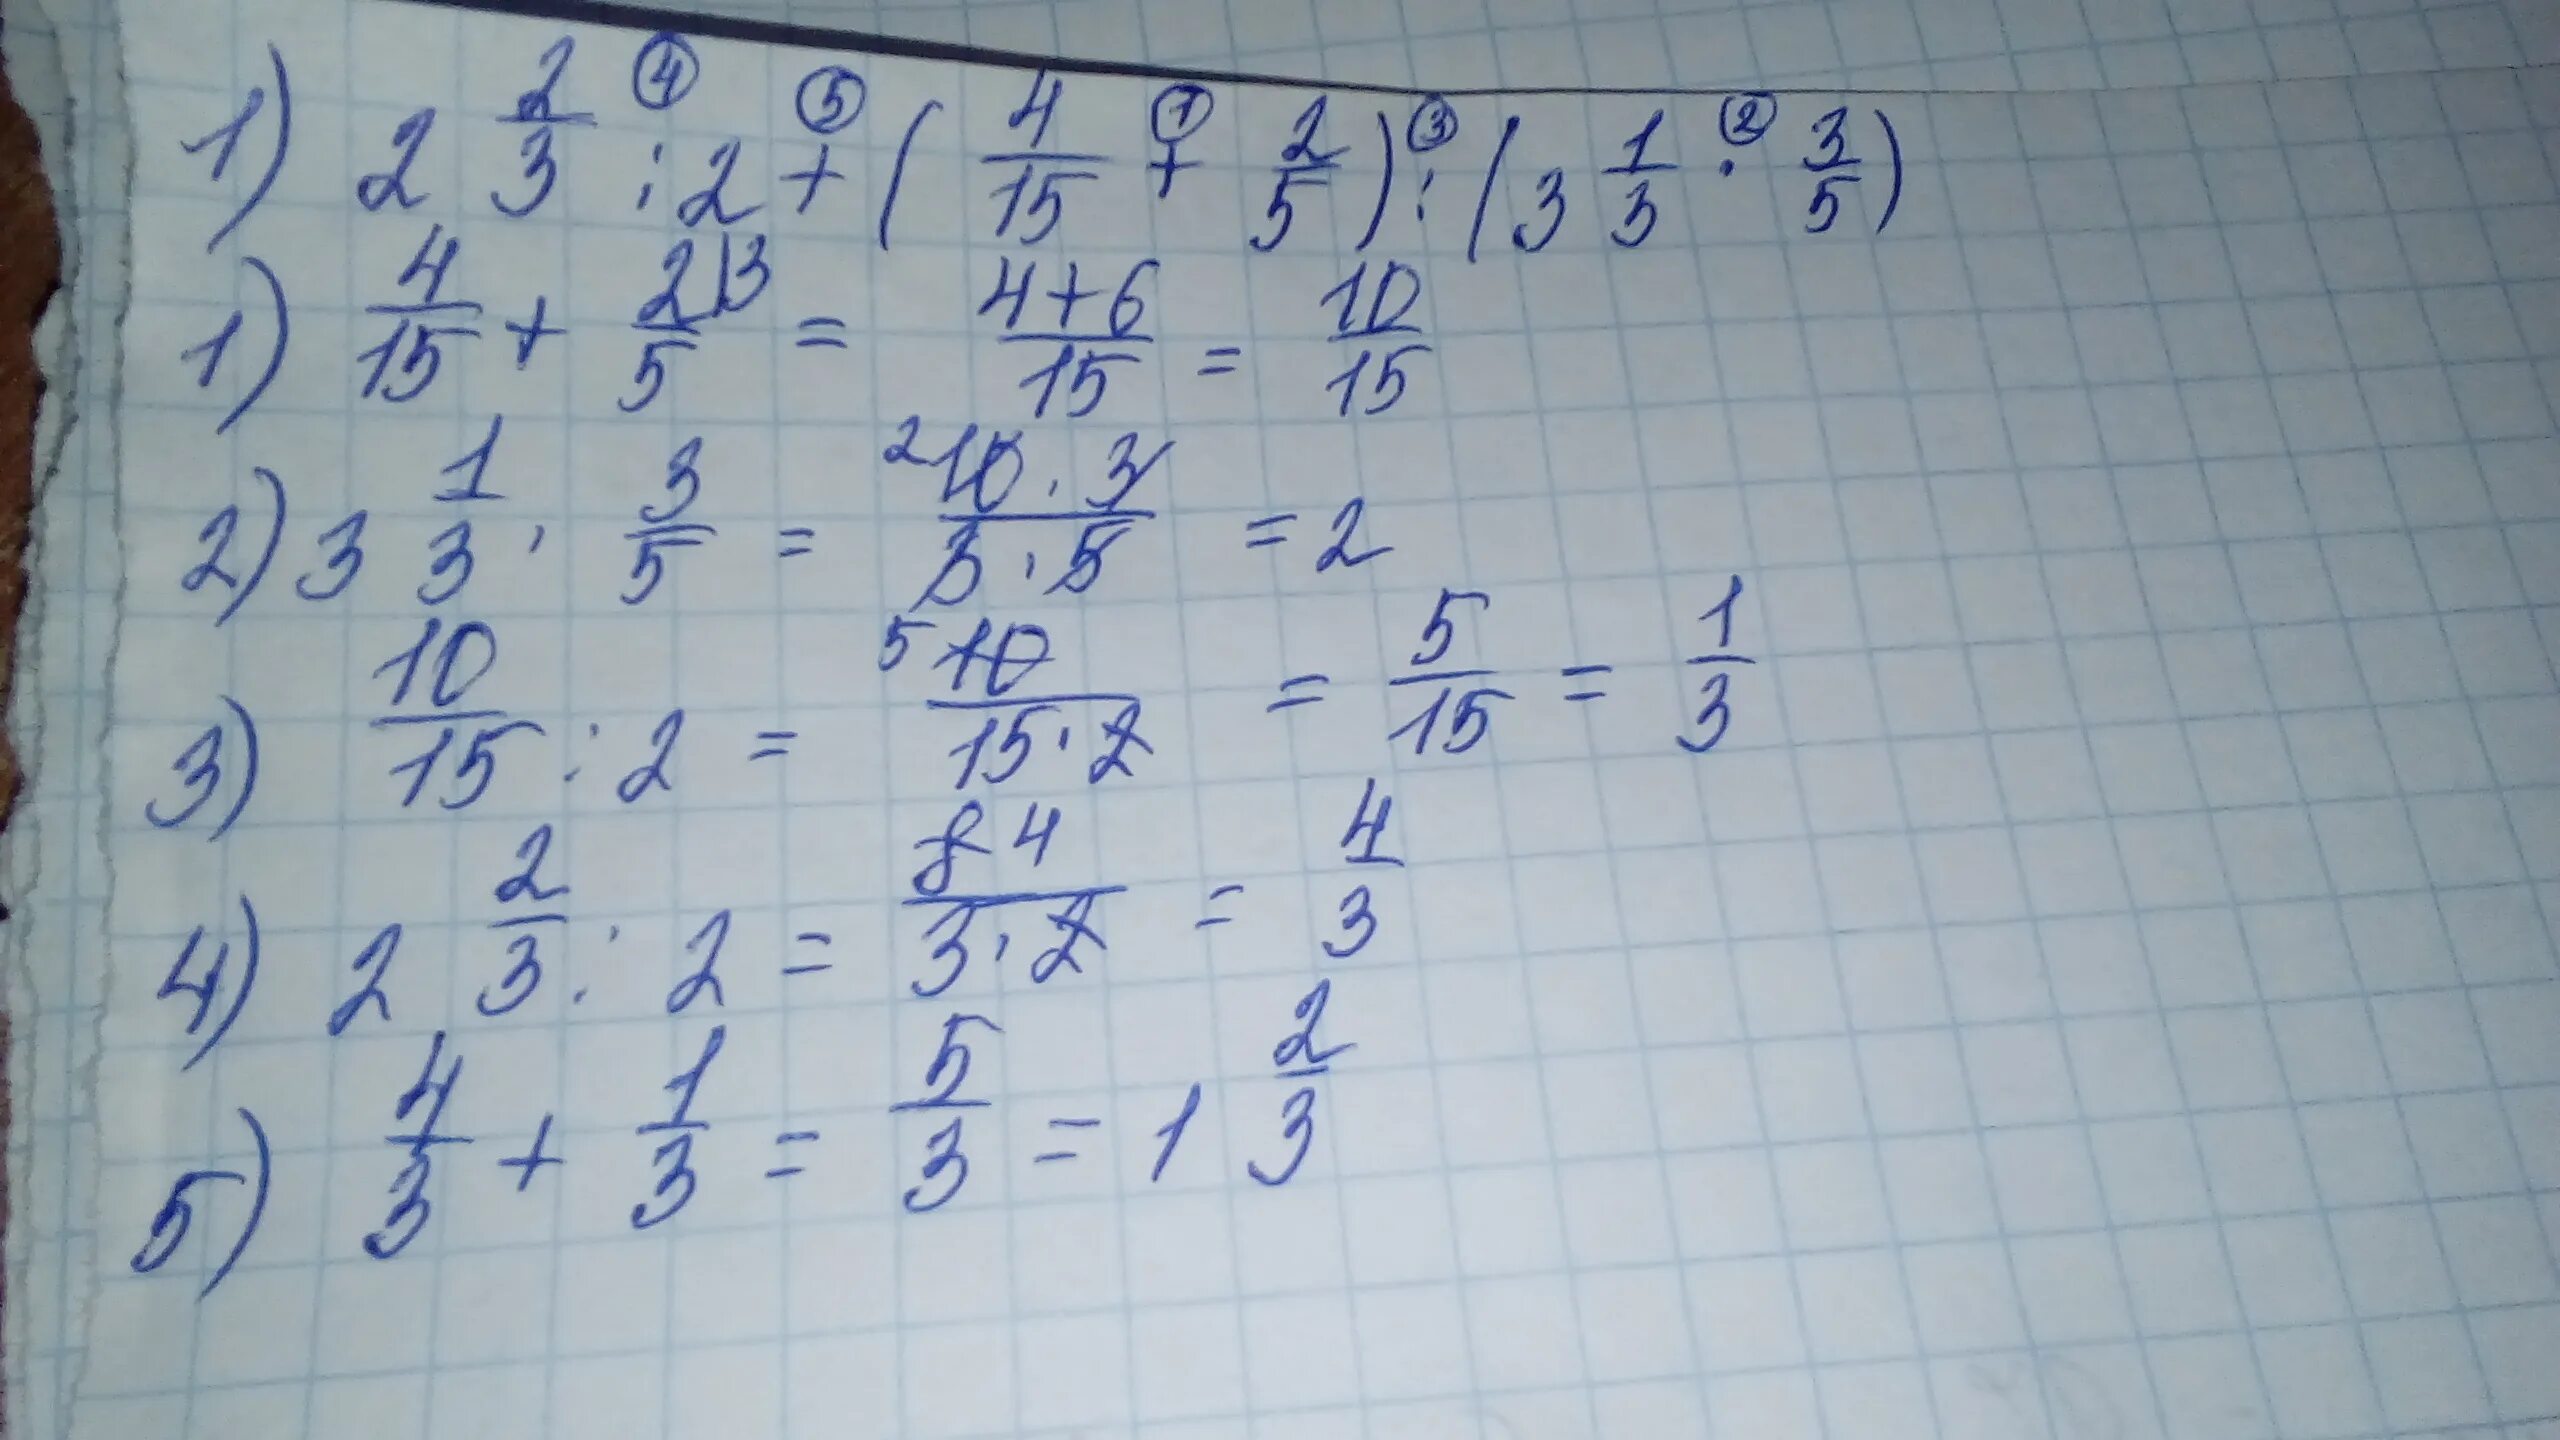 1) 2 2/3 : 2 + (4/15 + 2/5) : (3 1/3 · 3/5) ④ ⑤ ① ③ ②
1) 4/15 + 2|3/5 = 4+6/15 = 10/15
2) 3 1/3 · 3/5 = 2 10 · 3/3 · 5 = 2
3) 10/15 : 2 = 5 10/15 · 2 = 5/15 = 1/3
4) 2 2/3 : 2 = 8 4/3 · 2 = 4/3
5) 4/3 + 1/3 = 5/3 = 1 2/3